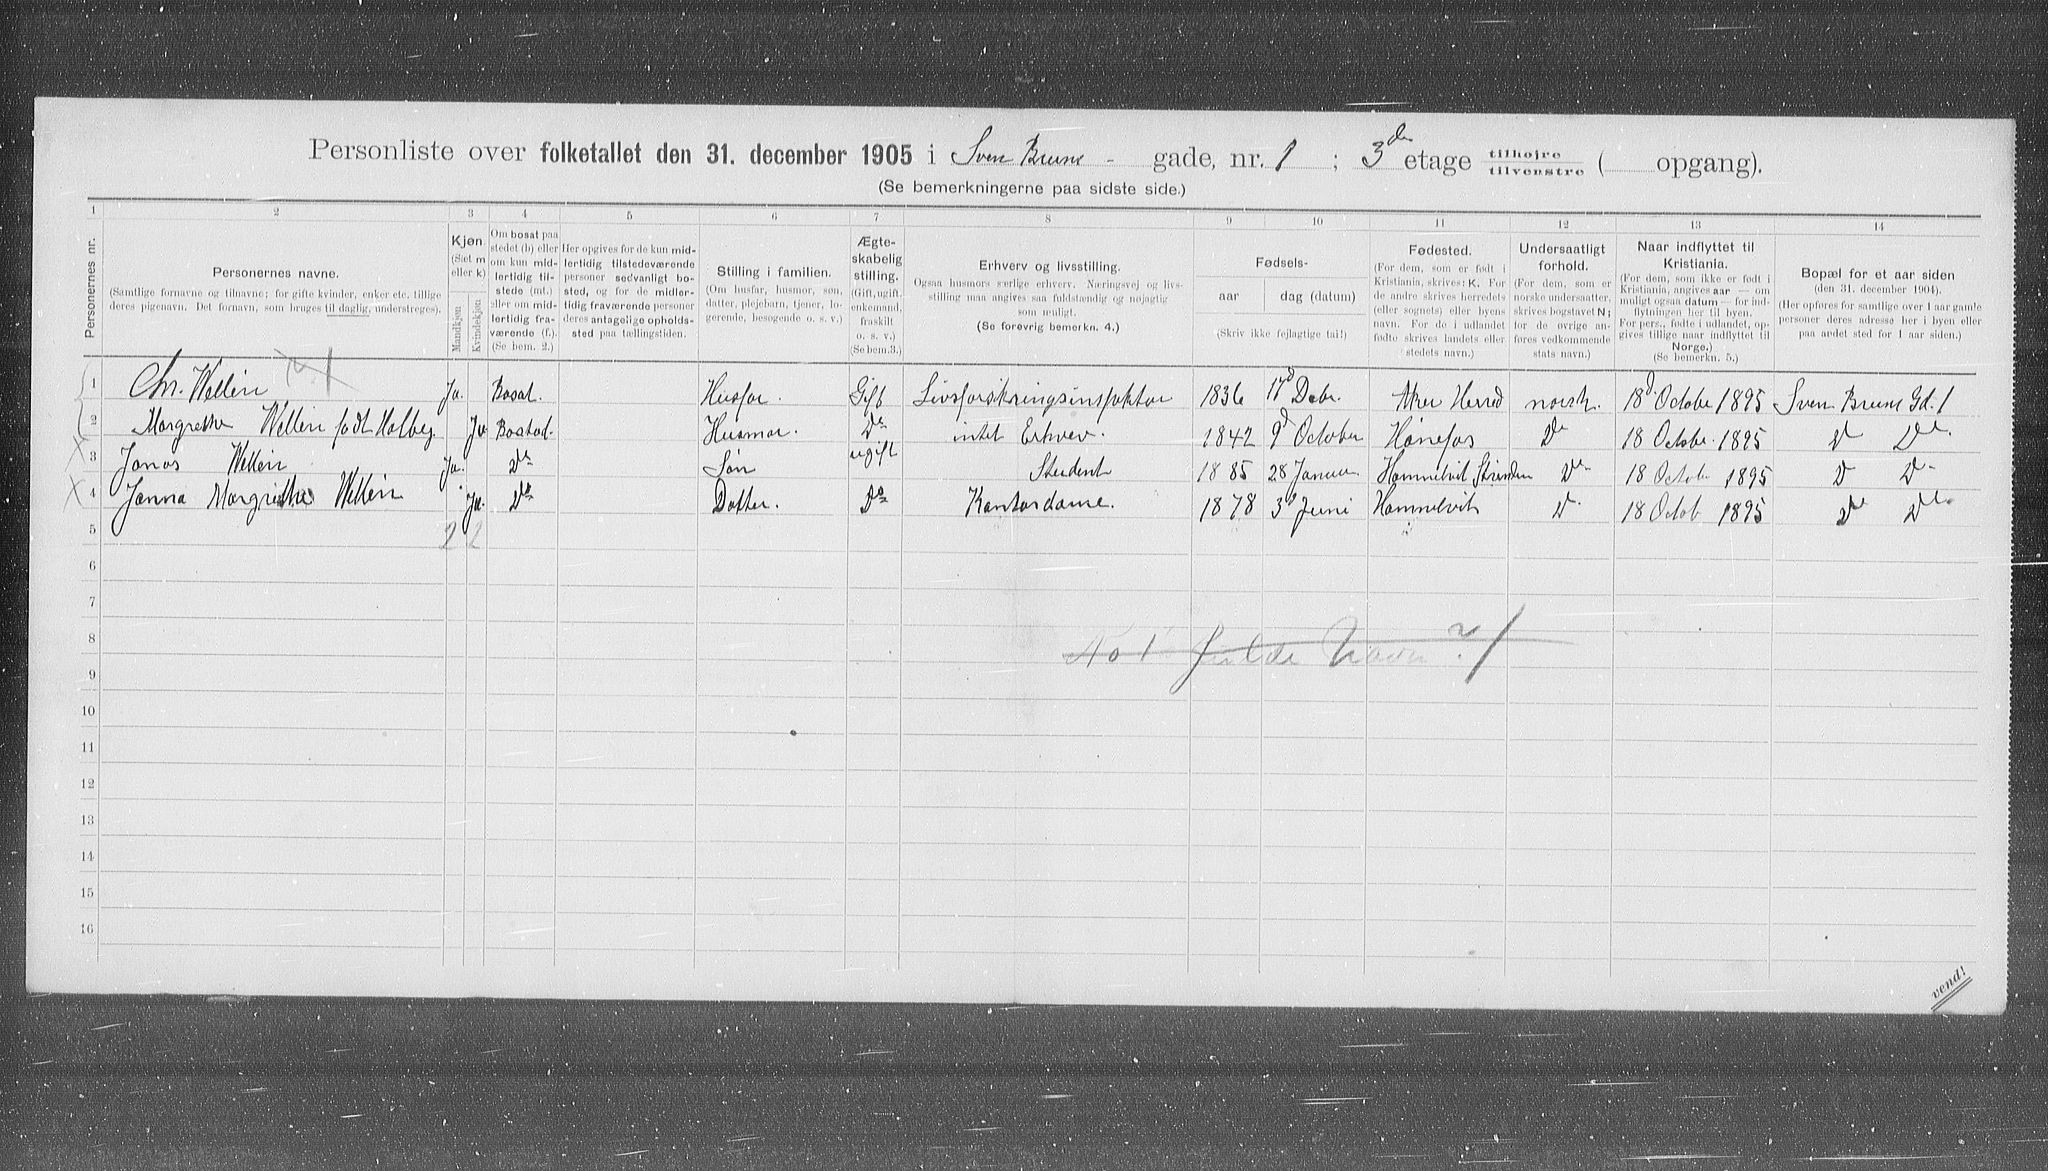 Personliste over folketallet den 31. december 1905 i Sven Brune - gade, nr. 1 ; 3de etage tilhøjre tilvenstre ( opgang).
(Se bemerkningerne paa sidste side.)
1 2 3 4 5 6 7 8 9 10 11 12 13 14
Personernes nr.
Personernes navne.
(Samtlige fornavne og tilnavne; for gifte kvinder, enker etc. tillige deres pigenavn. Det fornavn, som bruges til daglig, understreges).
Kjøn.
(Sæt m eller k)
Mandkjøn
Kvindekjøn
Om bosat paa stedet (b) eller om kun midlertidig tilstede (mt.) eller om midlertidig fraværende (f.). (Se bem. 2.)
Her opgives for de kun midlertidig tilstedeværende personer sedvanligt bosted, og for de midlertidig fraværende personer deres antagelige opholdssted paa tællingstiden.
Stilling i familien.
(Om husfar, husmor, søn, datter, plejebarn, tjener, logerende, besøgende o. s. v.)
Ægteskabelig stilling.
(Gift, ugift, enkemand, fraskilt o. s. v.)
(Se bem.3.)
Erhverv og livsstilling.
Ogsaa husmors særlige erhverv. Næringsvej og livsstilling maa angives saa fuldstændig og nøjagtig som muligt.
(Se forøvrig bemerkn. 4.)
Fødsels-
aar
dag (datum)
(Skriv ikke fejlagtige tal!)
Fødested.
(For dem, som er født i Kristiania, skrives: K. For de andre skrives herredets (eller sognets) eller byens navn. For de i udlandet fødte skrives landets eller stedets navn.)
Undersaatligt forhold.
(For dem, som er norske undersaatter, skrives bogstavet N; for de øvrige anføres vedkommende stats navn.)
Naar indflyttet til Kristiania.
(For dem, som ikke er født i Kristiania, angives aar — om muligt ogsaa datum — for indflytningen her til byen. For pers., fødte i udlandet, opgives tillige naar indflyttet til Norge.)
(Se bemerkn. 5.)
Bopæl for et aar siden
(den 31. december 1904).
(Her opføres for samtlige over 1 aar gamle personer deres adresse her i byen eller paa andet sted for 1 aar siden.)
1 Chr. Wellén Ja. Bosat. Husfar. Gift Livsforsikringsinspektor 1836 17d Debr. Aker Herred norsk. 18d October 1895 Sven Brune Gd. 1
2 Margrethe Wellén født Holbeg Ja Bostad. Husmor. Do intet Erhvev. 1842 9d October Hønefos Do 18 Octobr. 1895 Do Do.
3 Jonas Wellén Ja. Do Søn ugift Student 1885 28 Januar Hommelvik Strinden Do 18 Octobr 1895 D D
4 Janna Margrethe Wellén Ja. Do Datter. Do Kontordame. 1878 3d Juni Hommelvik D. 18 Octob 1895 Do Do.
5 2 2
6
7
8 No 1 fulde Navn ?
9
10
11
12
13
14
15
16
vend!